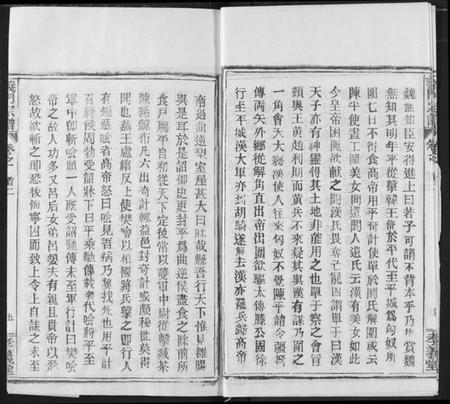 魏無知臣安得進上曰若子可謂不背本乎乃復賞魏
無知其明年平從擊韓王信於平代至平城為匈奴所
圍七日不得食高帝用平奇計使單于閼氏解圍或云
陳平使畫工圖美女間遣閼人遺氏云漢有美女如此
今皇帝困阨欲獻之閼漢氏畏奪已寵因謂單于曰漢
天子亦有神靈得其土地非能用之也單于察之會冒
頓與王黃趙利期而黃兵不來疑其與漢有謀乃圍之
一角會天大霧漢使人往來匈奴不覺陳平請令彊弩
傳兩矢外鄉從解角直出帝出圍欲驅太僕滕公固徐
行至平城漢大軍亦到胡騎遂解去漢亦罷兵歸高帝
南過曲逆望室屋甚大曰壯哉縣吾行天下惟見雒陽
與是耳於是詔御史更封平為曲逆侯盡食之除前所
食戶牖平自初從天下定後常以護軍中尉從擊臧荼
陳豨黥布凡六出奇計輒益邑封奇計或頗秘世莫得
聞也燕王盧綰反上使樊噲以相國將兵擊之既行人
有短惡噲者高帝怒曰噲見吾病乃冀我死也用平計
召絳侯周勃受詔牀下曰平乘馳傳載勃代噲將平至
軍中即斬噲頭二人既受詔馳傳未至軍行計曰樊噲
帝之故人功多又呂后女弟呂嬃夫有親且貴帝以忿
怒故欲斬之即恐後悔寧囚而致上令上自誅之未至
五
孝義堂